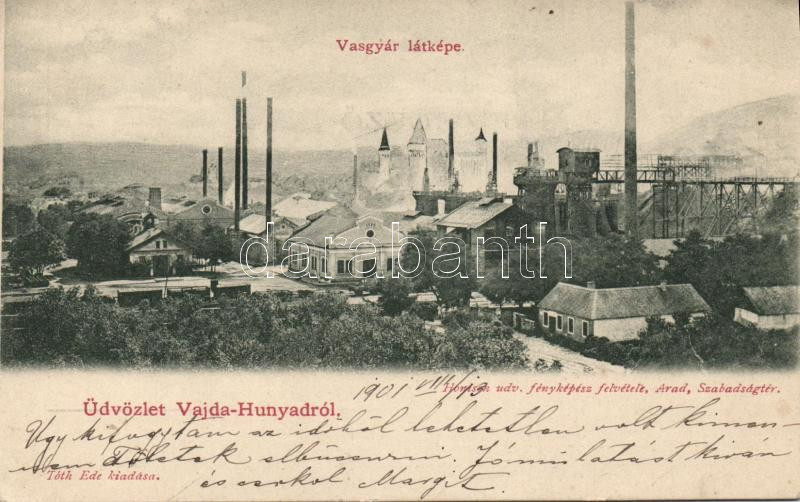 Vasgyár látképe.
darabanth
1901 VIII/13
Hontson udv. fényképész felvétele, Arad, Szabadságtér.
Üdvözlet Vajda-Hunyadról.
Úgy kifogytam az időből lehetetlen volt kimen-
nem Tőletek elbúcsúzni. Jó mulatást kíván
és csókol Margit.
Tóth Ede kiadása.